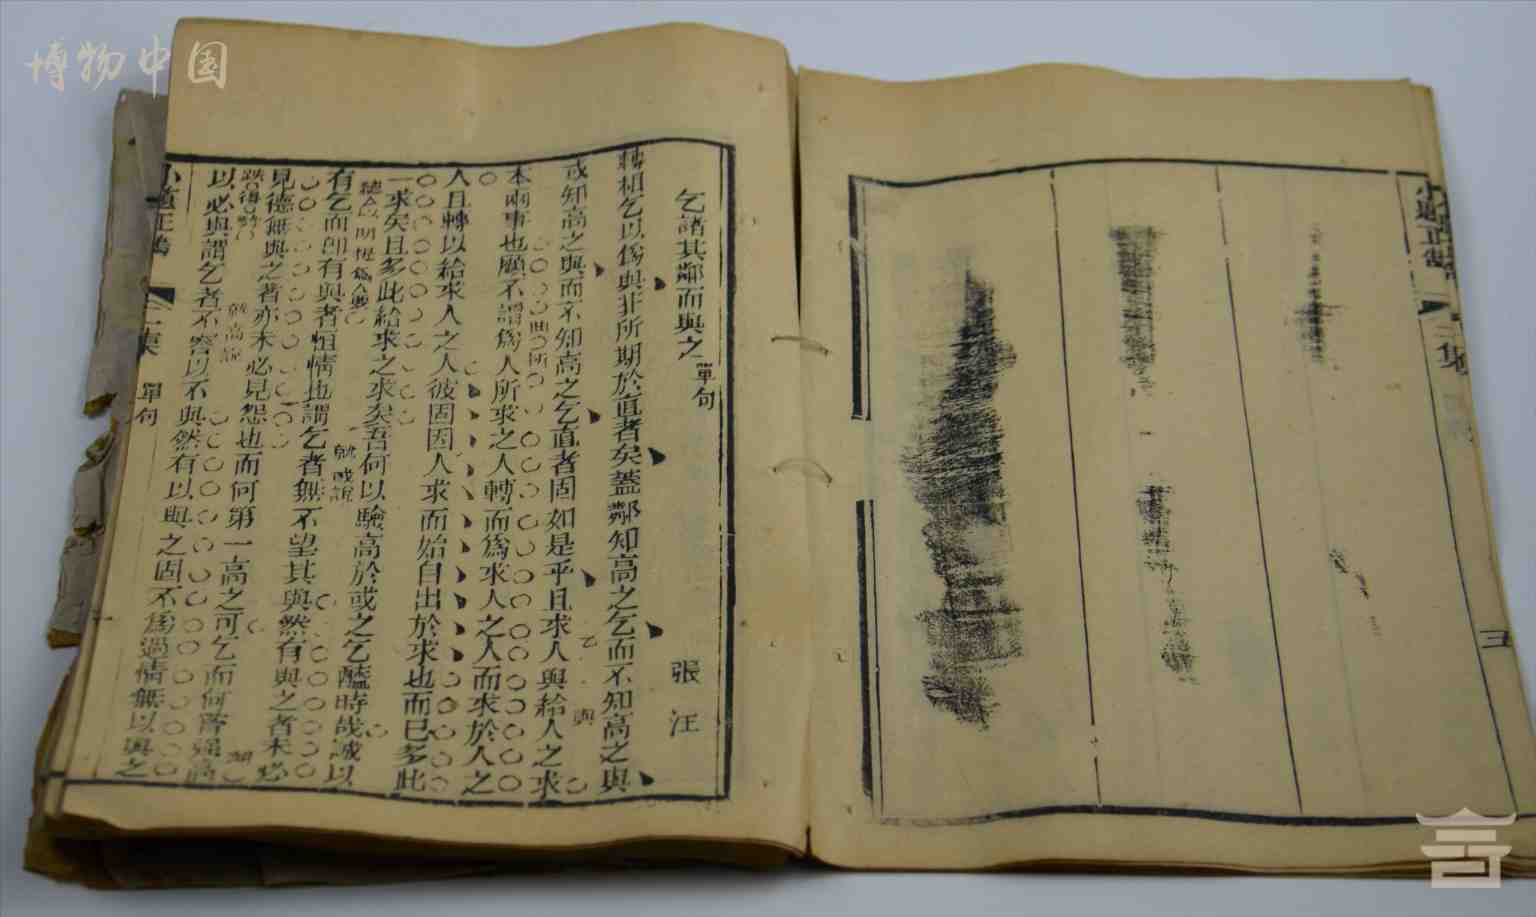 博物中国
乞諸其鄰而與之 單句
張汪
轉相乞以爲與非所期於直者矣蓋鄰知高之乞而不知高之與
或知高之與而不知高之乞直者固如是乎且求人與給人之求
本兩事也願不謂爲人所求之人轉而爲求人之人而求於人之
人且轉以給求人之人彼固因人求而始自出於求也而已多此
一求矣且多此給求之求矣吾何以驗高於或之乞醯時哉誠以
有乞而卽有與者恒情也謂乞者無不望其與然有與之者未必
見德無與之者亦未必見怨也而何第一高之可乞而何
以必與謂乞者不容以不與然有以與之固不爲過情無以與之
單句
二集
三